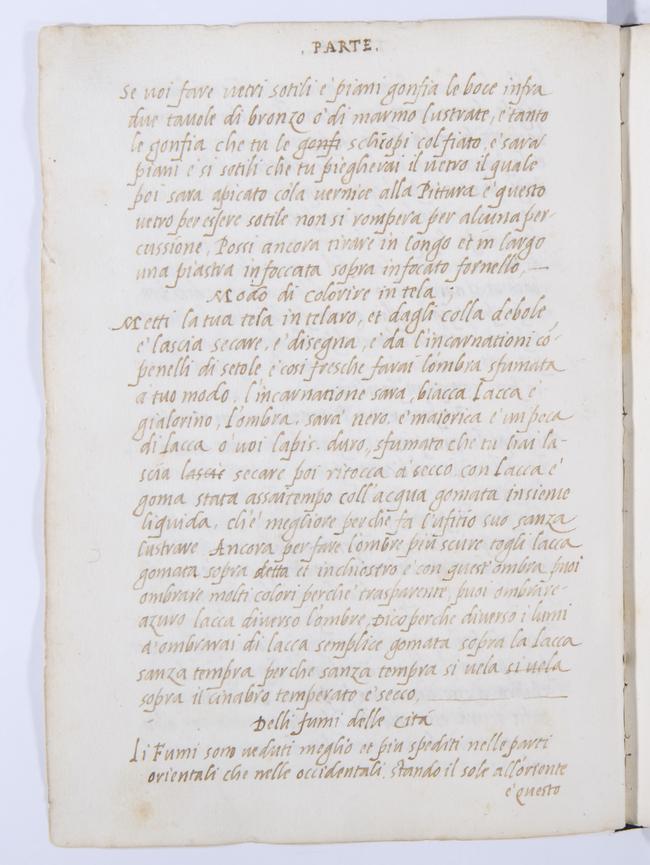 . PARTE .
Se voi fare vetri sotili e piani gonfia le boce infra
due tavole di bronzo o di marmo lustrate, e tanto
le gonfia che tu le gonfi schiopi col fiato, e sara
piani e si sotili che tu piegherai il vetro il quale
poi sara apicato cola vernice alla Pittura e questo
vetro per essere sotile non si rompera per alcuna per-
cussione, Possi ancora tirare in longo et in largo
una piastra infoccata sopra infocato fornello, —
Modo di colorire in tela ;
Metti la tua tela in telaro, et dagli colla debole,
e lascia secare, e disegna, e da l'incarnationi co
penelli di setole e cosi fresche farai l'ombra sfumata
a tuo modo, l'incarnatione sara, biacca lacca e
gialorino, l'ombra, sara nero, e maiorica e un poca
di lacca o voi lapis duro, sfumato che tu hai la-
scia lascie secare poi ritocca a secco con lacca e
goma stata assai tempo coll'acqua gomata insieme
liquida, ch'e megliore perche fa l'ufitio suo sanza
lustrare Ancora per fare l'ombre piu scure togli lacca
gomata sopra detta et inchiostro e con quest'ombra puoi
ombrare molti colori perche trasparente, puoi ombrare
azuro lacca diverso l'ombre, Dico perche diverso i lumi
a ombrarai di lacca semplice gomata sopra la lacca
sanza tempra perche sanza tempra si vela si vela
sopra il cinabro temperato e secco,
Delli fumi delle cità
Li Fumi sono veduti meglio et piu spediti nelle parti
orientali che nelle occidentali stando il sole all'oriente
e questo